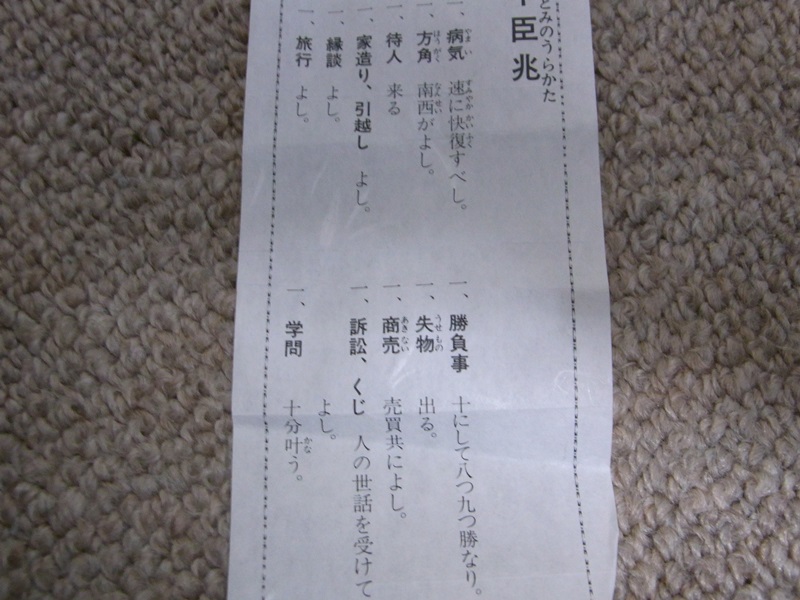 とみのうらかた
臣兆
一、病気 速に快復すべし。
一、方角 南西がよし。
一、待人 来る
一、家造り、引越し よし。
一、縁談 よし。
一、旅行 よし。
一、勝負事 十にして八つ九つ勝なり。
一、失物 出る。
一、商売 売買共によし。
一、訴訟、くじ 人の世話を受けて
よし。
一、学問 十分叶う。